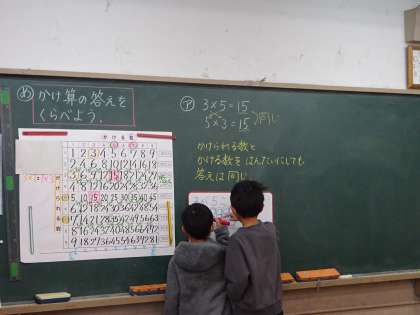 め かけ算の答えを
くらべよう。
かける数
1 2 3 4 5 6 7 8 9
2 4 6 8 10 12 14 16 18
3 6 9 12 15 18 21 24 27
4 8 12 16 20 24 28 32 36
5 10 15 20 25 30 35 40 45
6 12 18 24 30 36 42 48 54
7 14 21 28 35 42 49 56 63
8 16 24 32 40 48 56 64 72
9 18 27 36 45 54 63 72 81
ア 3×5=15
5×3=15
同じ
かけられる数と
かける数をはんたいにしても
答えは同じ